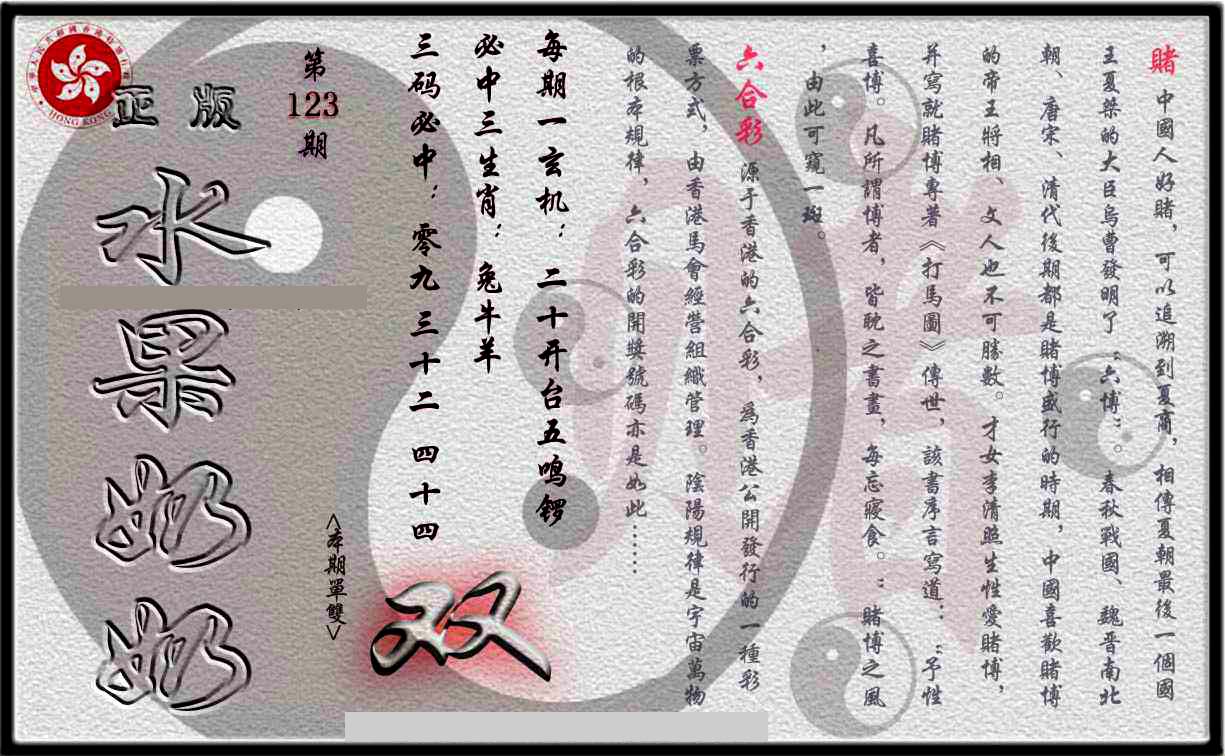 賭 中國人好賭，可以追溯到夏商，相傳夏朝最後一個國
王夏桀的大臣烏曹發明了“六博”。春秋戰國、魏晉南北
朝、唐宋、清代後期都是賭博盛行的時期，中國喜歡賭博
的帝王將相、文人也不可勝數。才女李清照生性愛賭博，
并寫就賭博專著《打馬圖》傳世，該書序言寫道：“予性
喜博。凡所謂博者，皆耽之書畫，每忘寢食。”賭博之風
，由此可窺一斑。
六合彩 源于香港的六合彩，為香港公開發行的一種彩
票方式，由香港馬會經營組織管理。陰陽規律是宇宙萬物
的根本規律，六合彩的開獎號碼亦是如此……
每期一玄机：二十开台五鸣锣
必中三生肖：兔牛羊
三码必中：零九 三十二 四十四
双
<本期單雙>
第
123
期
正版
水果奶奶
HONG KONG